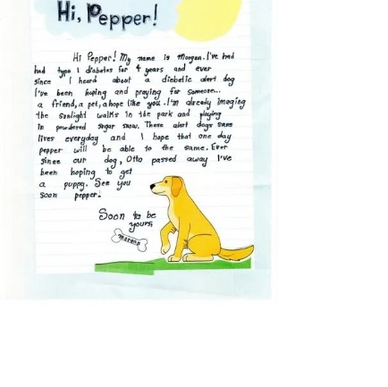 Hi, Pepper!
Hi Pepper! My name is Morgan. I've had
had type 1 diabetes for 4 years and ever
since I heard about a diabetic alert dog
I've been hoping and praying for someone...
a friend, a pet, a hope like you. I'm already imaging
the sunlight walks in the park and playing
in powdered sugar snow. These alert dogs save
lives everyday and I hope that one day
pepper will be able to the same. Ever
since our dog, Otto passed away I've
been hoping to get
a puppy. See you
soon pepper!
Soon to be
yours,